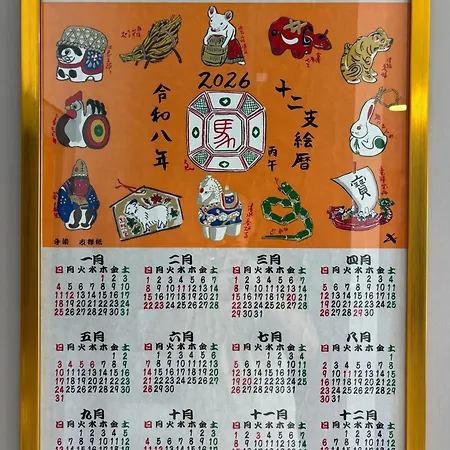 2026
令和八年
十二支絵暦
丙午
馬
寶
一月
日月火水木金土
1 2 3
4 5 6 7 8 9 10
11 12 13 14 15 16 17
18 19 20 21 22 23 24
25 26 27 28 29 30 31
二月
日月火水木金土
1 2 3 4 5 6 7
8 9 10 11 12 13 14
15 16 17 18 19 20 21
22 23 24 25 26 27 28
三月
日月火水木金土
1 2 3 4 5 6 7
8 9 10 11 12 13 14
15 16 17 18 19 20 21
22 23 24 25 26 27 28
29 30 31
四月
日月火水木金土
1 2 3 4
5 6 7 8 9 10 11
12 13 14 15 16 17 18
19 20 21 22 23 24 25
26 27 28 29 30
五月
日月火水木金土
1 2
3 4 5 6 7 8 9
10 11 12 13 14 15 16
17 18 19 20 21 22 23
24 25 26 27 28 29 30
31
六月
日月火水木金土
1 2 3 4 5 6
7 8 9 10 11 12 13
14 15 16 17 18 19 20
21 22 23 24 25 26 27
28 29 30
七月
日月火水木金土
1 2 3 4
5 6 7 8 9 10 11
12 13 14 15 16 17 18
19 20 21 22 23 24 25
26 27 28 29 30 31
八月
日月火水木金土
1
2 3 4 5 6 7 8
9 10 11 12 13 14 15
16 17 18 19 20 21 22
23 24 25 26 27 28 29
30 31
九月
日月火水木金土
1 2 3 4 5
6 7 8 9 10 11 12
十月
日月火水木金土
1 2 3
4 5 6 7 8 9 10
十一月
日月火水木金土
1 2 3 4 5 6 7
8 9 10 11 12 13 14
十二月
日月火水木金土
1 2 3 4 5
6 7 8 9 10 11 12